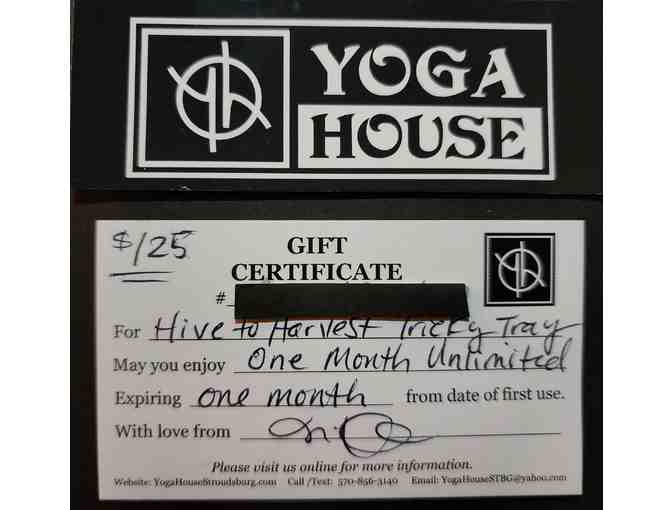 YOGA
HOUSE
$125
GIFT
CERTIFICATE
#
For Hive to Harvest Tricky Tray
May you enjoy One Month Unlimited
Expiring one month from date of first use.
With love from
Please visit us online for more information.
Website: YogaHouseStroudsburg.com Call /Text: 570-856-3140 Email: YogaHouseSTBG@yahoo.com